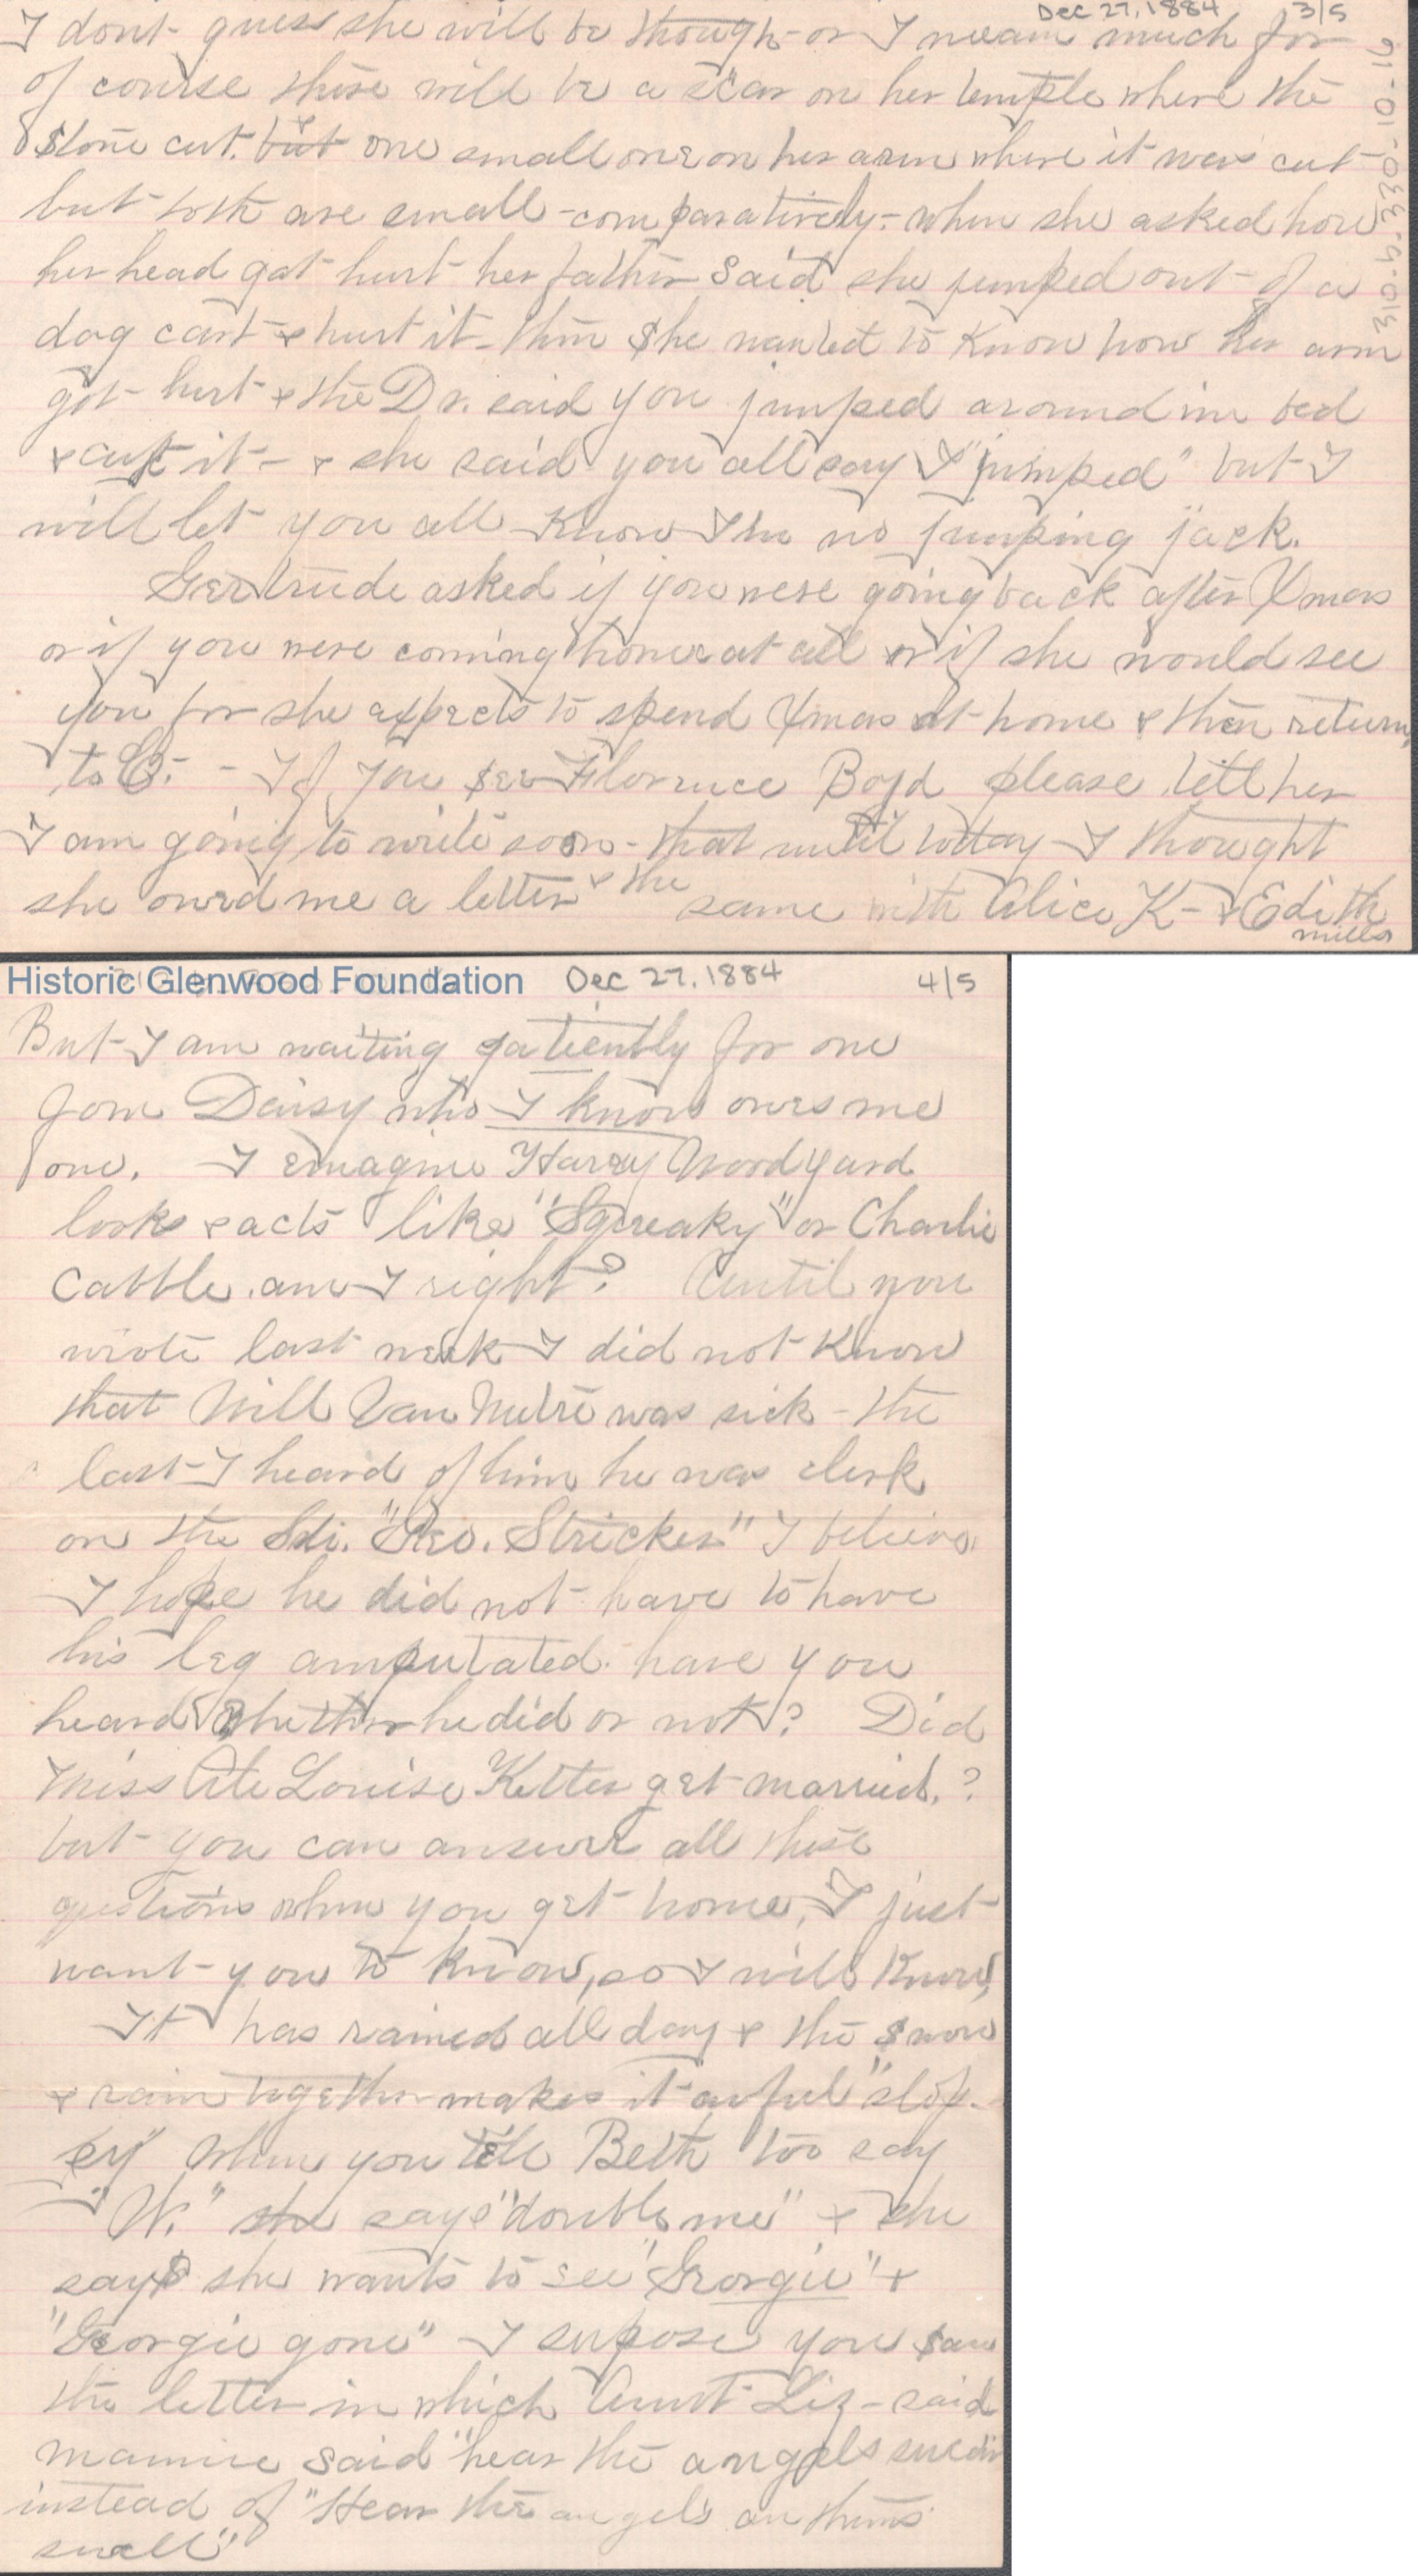 Dec 27, 1884 3/5
I dont guess she will be though or I mean much for
of course there will be a scar on her temple where the
stone cut. but one small one on her arm where it was cut
but both are small - comparatively - when she asked how
her head got hurt her father said she jumped out of a
dog cart & hurt it - then she wanted to know how her arm
got hurt & the Dr. said you jumped around in bed
& cut it - & she said you all say I "jumped" but I
will let you all know I'm no jumping jack.
Gertrude asked if you were going back after Xmas
or if you were coming home at all or if she would see
you for she expects to spend Xmas at home & then return
to C. - If you see Florence Boyd please tell her
I am going to write soon - that until today I thought
she owed me a letter & the same with Alice K - & Edith
Mills
310-9-330-10-16
Historic Glenwood Foundation Dec 27, 1884 4/5
But I am waiting patiently for one
from Daisy who I know owes me
one. I emagine Harry Woodyard
looks & acts like "Squeaky" or Charlie
Cabble. am I right? Until you
wrote last week I did not know
that Will Van Metre was sick - the
last I heard of him he was clerk
on the Str. "Geo. Strecker" I believe
I hope he did not have to have
his leg amputated. have you
heard whether he did or not? Did
Miss Louise Ketter get married.?
but you can answer all these
questions when you get home, I just
want you to know, so I will know,
It has rained all day & the snow
& rain together makes it awful "slop-
py" When you tell Beth too say
"W." she says "double me" & she
says she wants to see "Georgie" &
"Georgie gone" I supose you saw
the letter in which Aunt Liz - said
mamie said "hear the angels
instead of "Hear the angels anthems
swell"